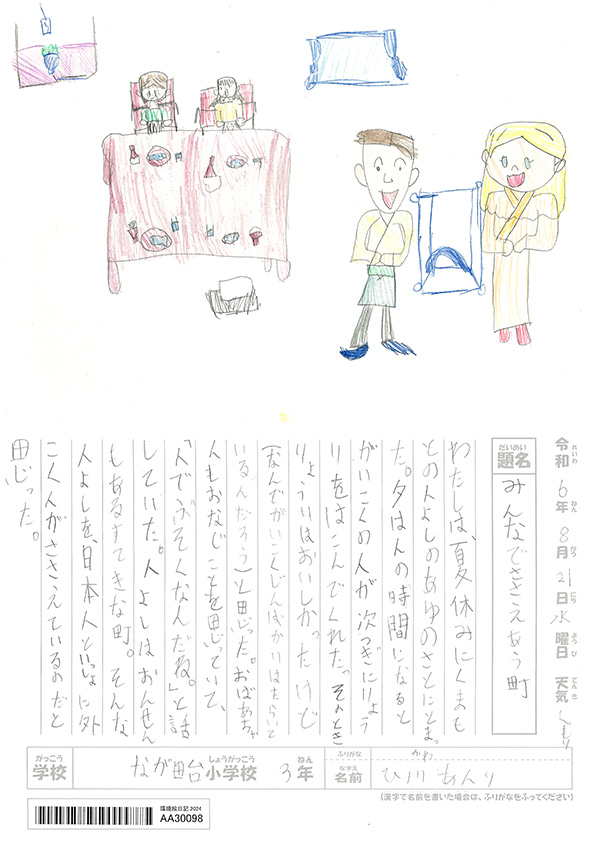 令和6年8月21日水曜日 天気くもり
れいわ ねん がつ にち ようび てんき
題名 みんなでささえあう町
だいめい
わたしは、夏休みにくまも
との人よしのあゆのさとにとまっ
た。夕はんの時間になると
がいこくの人が次つぎにりょう
りをはこんでくれた。そのとき
りょうりはおいしかったけど
(なんでがいこくじんばかりはたらいて
いるんだろう)と思った。おばあちゃ
んもおなじことを思っていて、
「人でぶそくなんだね。」と話
していた。人よしはおんせん
もあるすてきな町。そんな
人よしを、日本人といっしょに外
こく人がささえているのだと
思った。
がっこう しょうがっこう ねん ふりがな
学校 なが田台小学校 3年
なまえ
名前 ひ川あんり
かわ
(漢字で名前を書いた場合は、ふりがなをふってください)
環境絵日記 2024
AA30098